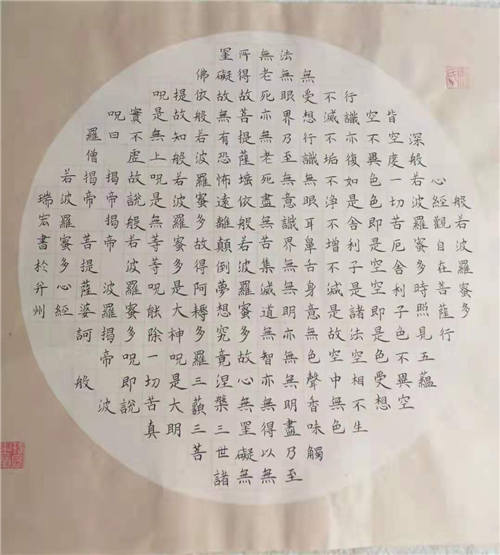 般若波羅蜜多
心經觀自在菩薩行
深般若波羅蜜多時照見五蘊
皆空度一切苦厄舍利子色不異空
空不異色色即是空空即是色受想
行識亦復如是舍利子是諸法空相不生
不滅不垢不淨不增不減是故空中無色
無受想行識無眼耳鼻舌身意無色聲香味觸
法無眼界乃至無意識界無無明亦無無明盡乃至
無老死亦無老死盡無苦集滅道無智亦無得以無
所得故菩提薩埵依般若波羅蜜多故心無罣礙無
罣礙故無有恐怖遠離顛倒夢想究竟涅槃三世諸
佛依般若波羅蜜多故得阿耨多羅三藐三菩
提故知般若波羅蜜多是大神呪是大明
呪是無上呪是無等等呪能除一切苦真
實不虛故說般若波羅蜜多呪即說
呪曰揭帝揭帝波羅揭帝波
羅僧揭帝菩提薩婆訶般
若波羅蜜多心經
瑞宏書於升州